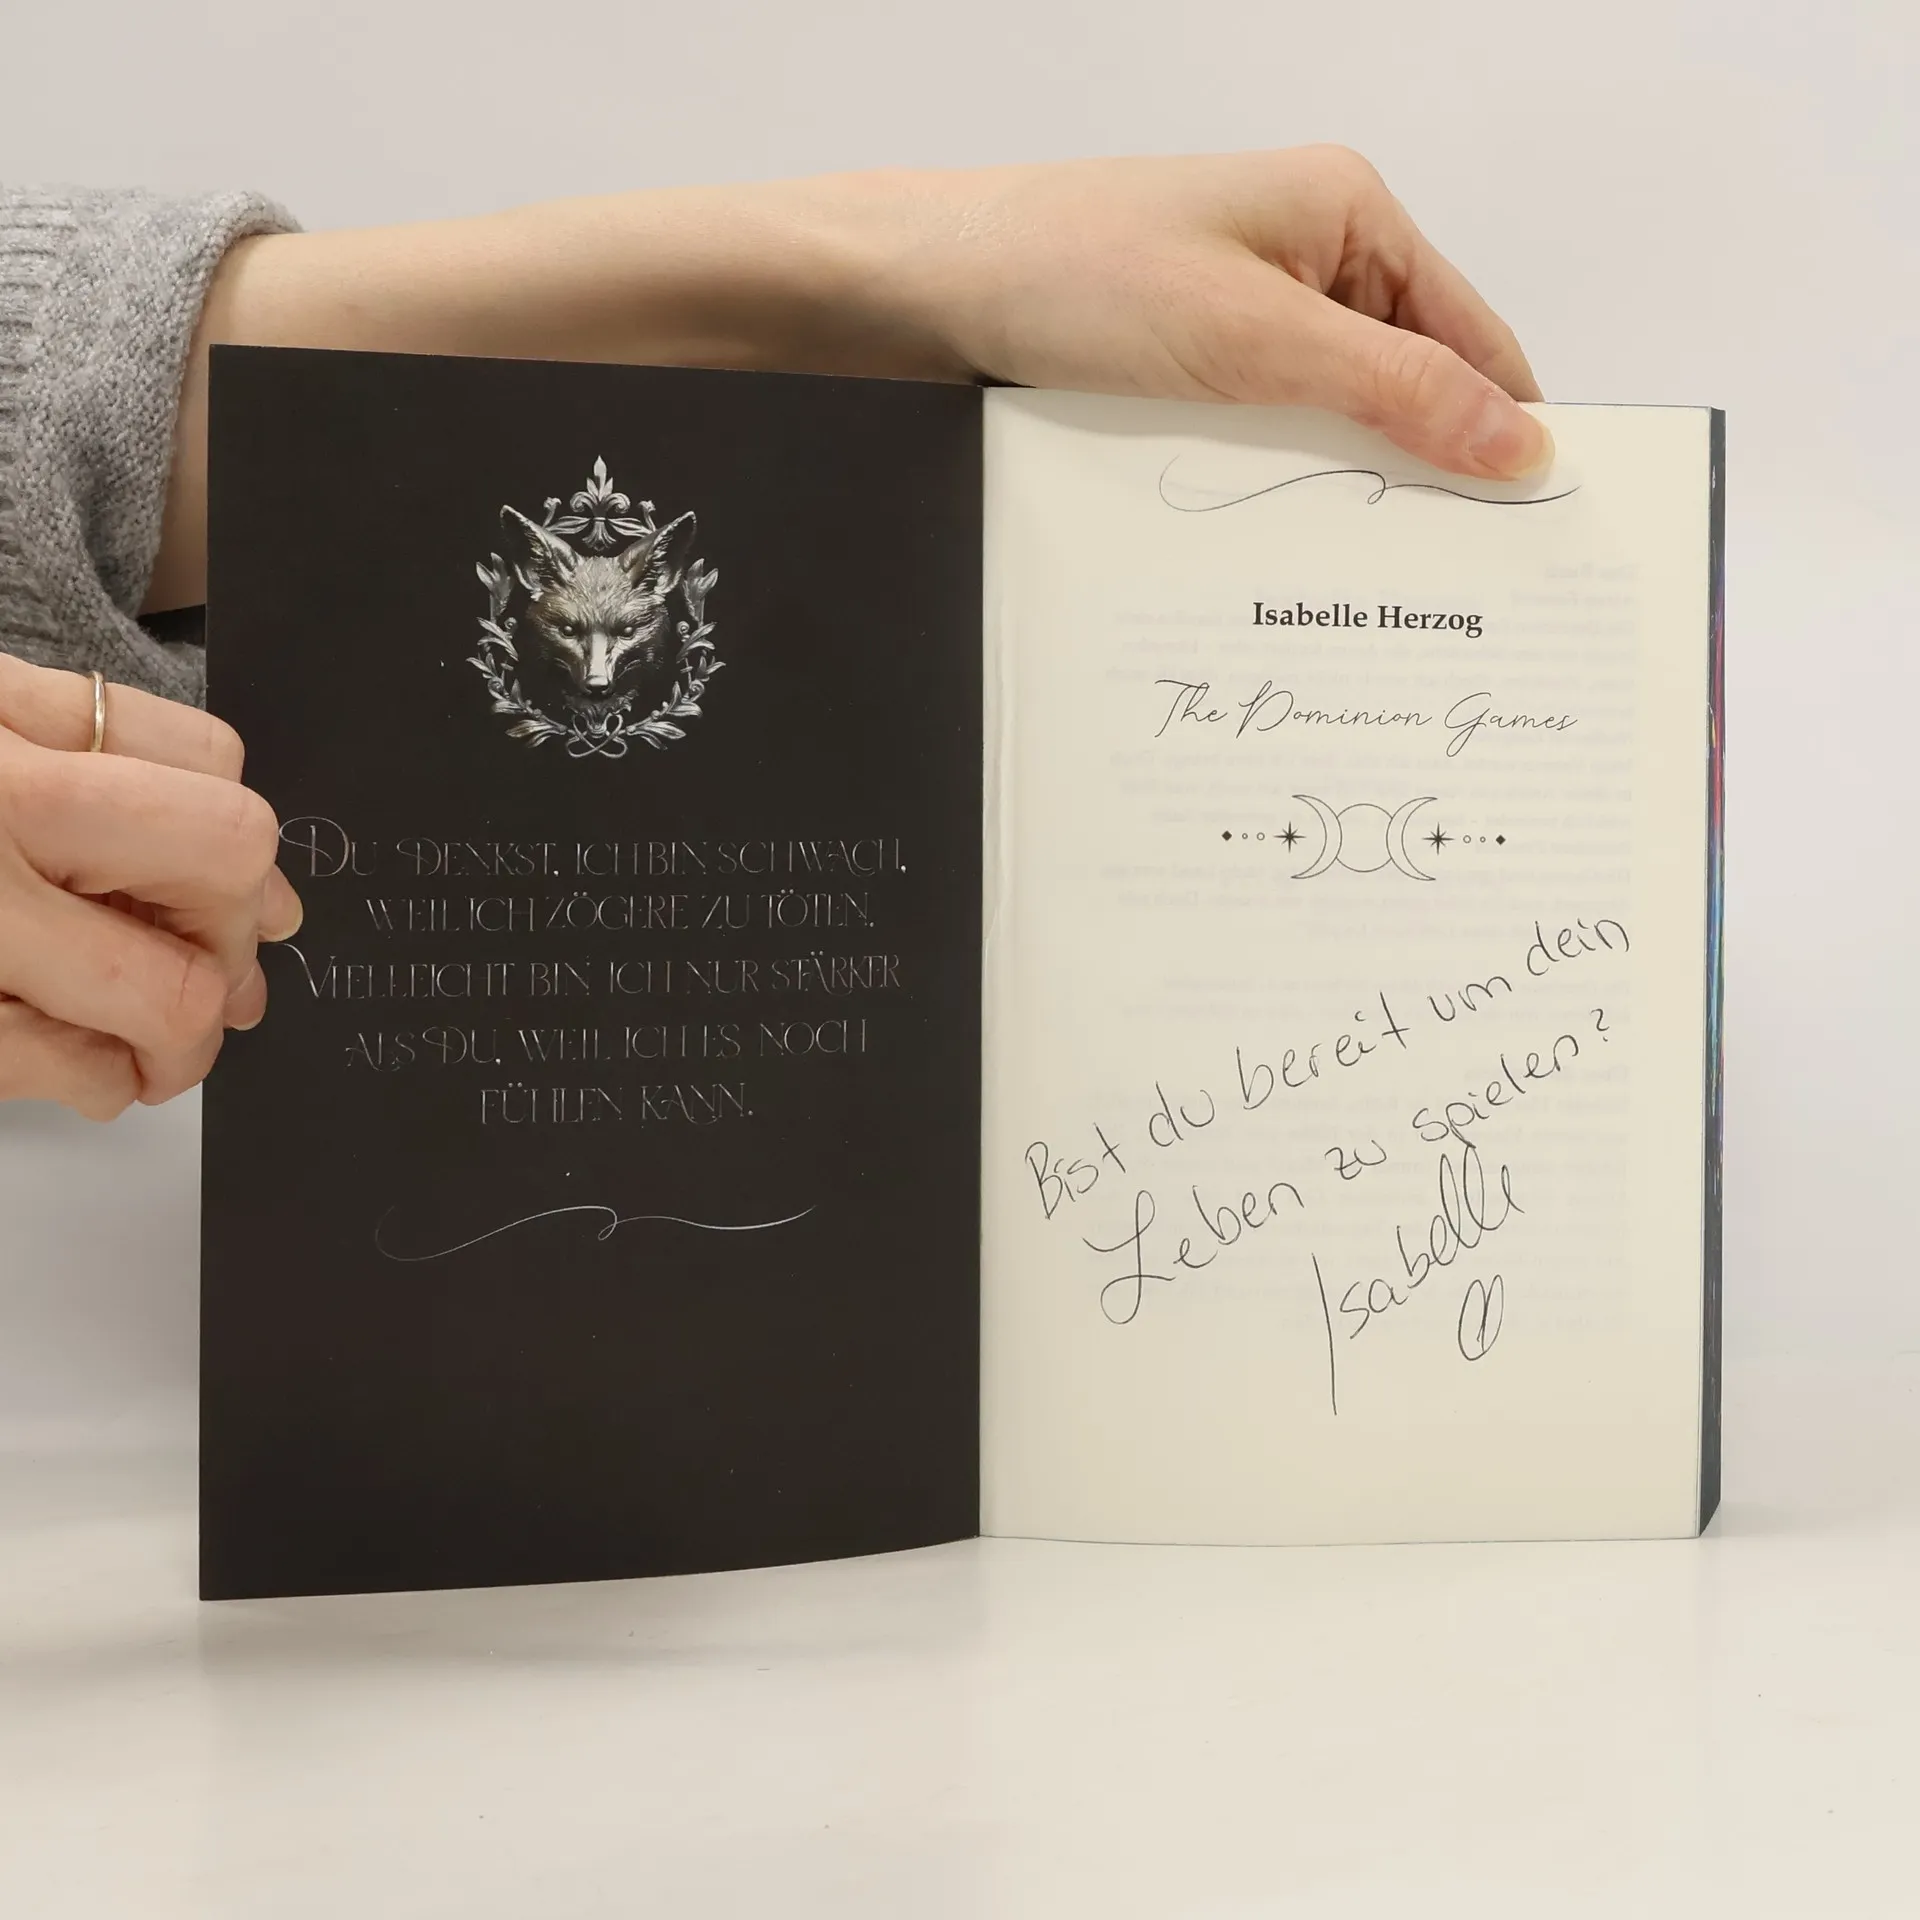 Du denkst, ich bin schwach,
weil ich zögere zu töten.
Vielleicht bin ich nur stärker
als Du, weil ich es noch
fühlen kann.
Isabelle Herzog
The Dominion Games
Bist du bereit um dein
Leben zu spielen?
Isabelle